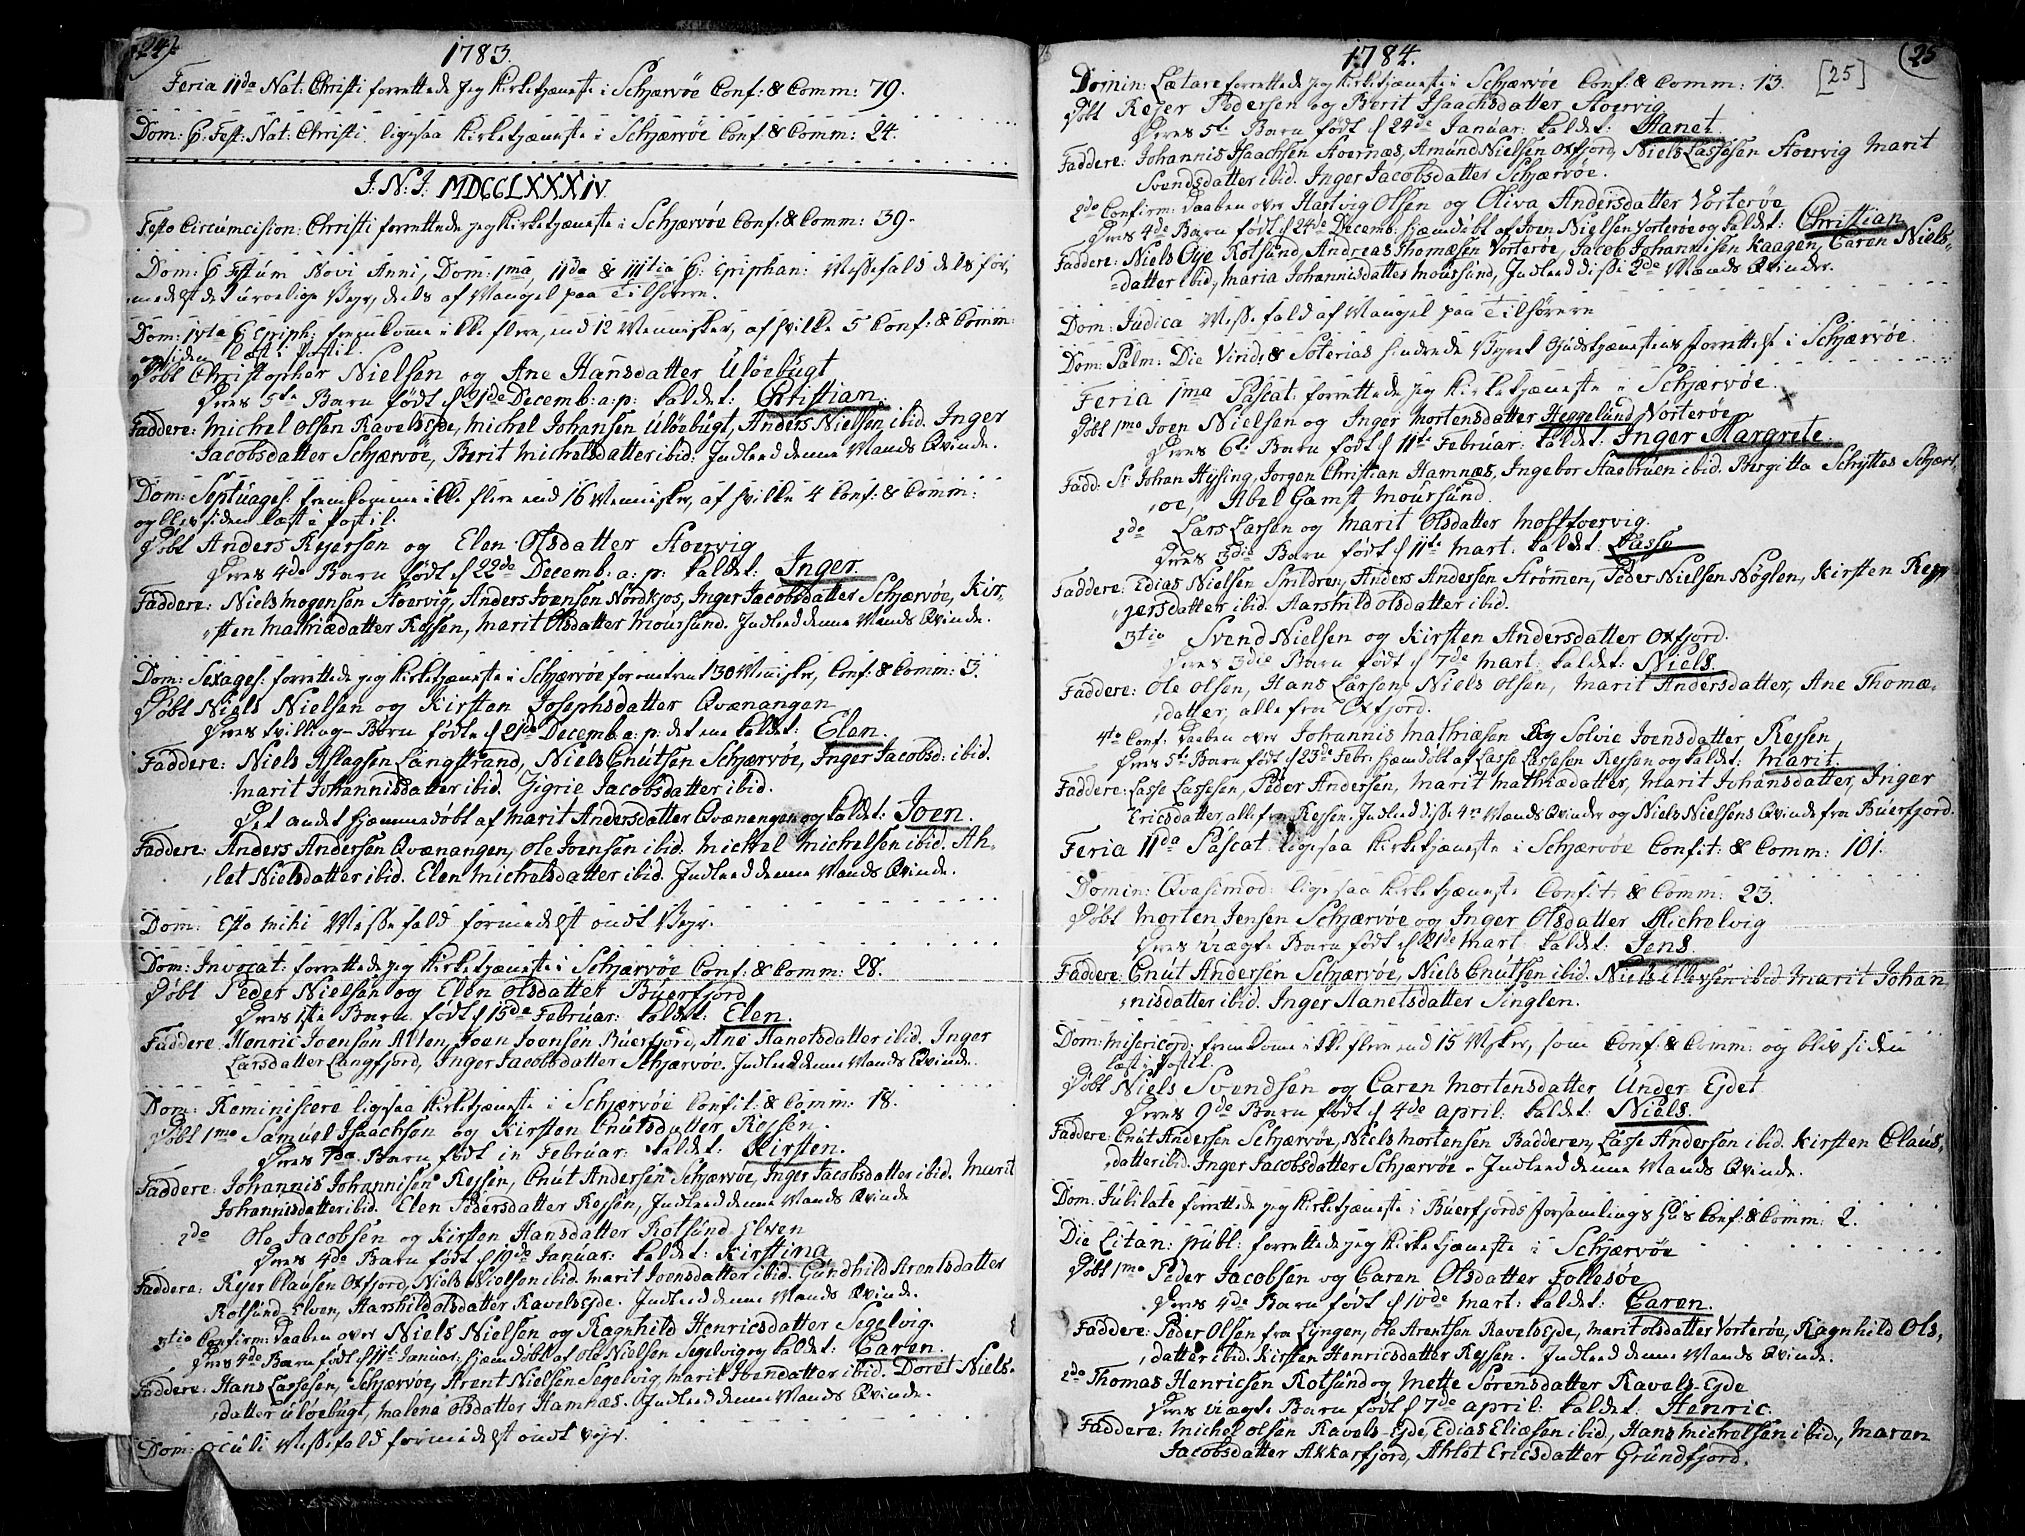 24)
1783.
Feria IIda Nat: Christi forrettede jeg Kirketjæneste i Schjærvöe Conf: & Comm: 79.
Dom: p. Fest: Nat: Christi. ligesaa Kirketjæneste i Schjærvöe Conf: & Comm: 24.
J: N: J: MDCCLXXXIV
Festo Circumcision: Christi forrettede jeg Kirketjæneste i Schjærvöe Conf: & Comm: 39.
Dom: p Festum Novi Anni, Dom: 1ma, IIda & IIItia p: Epiphan: Messefald dels for,
medelst det urolige Veyr, dels af Mangel paa Tilhörere.
Dom: IVta p Epiph: fremkomme ikke flere, end 12 Mennisker, af hvilke 5 Conf: & Comm:
og siden læst i Postil.
Døbt Christopher Nielsen og Ane Hansdatter Ulöebugt
Deres 5te Barn født d 21de Decemb: a: p: kaldet: Christian.
Faddere: Michel Olsen Ravelseyde, Michel Johansen Ulöebugt, Anders Nielsen ibid. Inger
Jacobsdatter Schjærvöe, Berit Michelsdatter ibid: Indleed denne Mands Qvinde.
Dom: Septuages: fremkomme ikke flere end 16 Mennisker, af hvilke 4 Conf: & Comm:
og blev siden læst i Postil.
Døbt Anders Rejersen og Elen Olsdatter Stoervig
Deres 4de Barn født d 22de Decemb: a: p: kaldet: Inger.
Faddere: Niels Mogensen Stoervig, Anders Joensen Nordkjos, Inger Jacobsdatter Schjærvöe, Kir,
sten Mathiædatter Rejsen, Marit Olsdatter Moursund. Indleed denne Mands Qvinde.
Dom: Sexages: forrettede jeg Kirketjæneste i Schjærvöe for omtrent 30 Mennisker, Conf: & Comm: 3.
Døbt Niels Nielsen og Kirsten Josephsdatter Qvænangen
Deres tvilling-Børn fødte d 21de Decemb: a: p: det ene kaldet: Elen.
Faddere: Niels Aslagsen Langstrand, Niels Cnutsen Schjærvöe, Inger Jacobsd: ibid.
Marit Johannisdatter ibid. Zigrie Jacobsdatter ibid.
Det andet hjemmedøbt af Marit Andersdatter Qvænangen og kaldet: Joen.
Faddere: Anders Andersen Qvænangen, Ole Joensen ibid. Michel Michelsen ibid. Ah,
let Nielsdatter ibid. Elen Michelsdatter ibid. Indleed denne Mands Qvinde.
Dom: Esto mihi Messefald formedelst ondt Veyr.
Dom: Invocat: forrettede jeg Kirketjæneste i Schjærvöe Conf: & Comm: 28.
Døbt Peder Nielsen og Elen Olsdatter Buerfjord
Deres 1ste Barn født d 15de Februar: kaldet: Elen.
Faddere: Henric Joensen Alten, Joen Joensen Buerfjord, Ane Hanetsdatter ibid. Inger
Larsdatter Langfjord, Inger Jacobsdatter Schjærvöe. Indleed denne Mands Qvinde.
Dom: Reminiscere ligesaa Kirketjæneste i Schjærvöe Confit: & Comm: 18.
Døbt 1mo Samuel Isaachsen og Kirsten Cnutsdatter Rejsen.
Deres 7da Barn født in Februar: kaldet: Kirsten.
Faddere: Johannis Johannisen Rejsen, Cnut Andersen Schjærvöe, Inger Jacobsdatter ibid. Marit
Johannisdatter ibid. Elen Pedersdatter Rejsen, Indleed denne Mands Qvinde
2do Ole Jacobsen og Kirsten Hansdatter Rotsund Elven
Deres 4de Barn født d 19de Januar: kaldet: Kirstina
Faddere: Rejer Clausen Oxfjord, Niels Nielsen ibid. Marit Joensdatter ibid. Gundhild Arentsdatter
Rotsund-Elven, Aarshild Olsdatter Ravelseyde. Indleed denne Mands Qvinde.
3tio Confirm: Daaben over Niels Nielsen og Ragnhild Henricsdatter Segelvig.
Deres 4de Barn født d 11te Januar: hjemdøbt af Ole Nielsen Segelvig og kaldet: Caren.
Faddere: Hans Lassesen, Schjærvöe, Arent Nielsen Segelvig, Marit Joendatter ibid. Doret Niels-
datter Ulöebugt, Malena Olsdatter Hamnæs. Indleed denne Mands Qvinde.
Dom: Oculi Messefald formedelst ondt vejr.
1784.
(25
[25]
Domin: Lætare forrettede jeg Kirketjæneste i Schjærvöe Conf: & Comm: 13.
Døbt Rejer Pedersen og Berit Isaachsdatter Stoervig
Deres 5te Barn født d 24de Januar: kaldet: Hanet.
Faddere: Johannis Isaachsen Stoernæs, Amund Nielsen Oxfjord, Niels Lassesen Stoervig Marit
Svendsdatter ibid. Inger Jacobsdatter Schjærvöe.
2do Confirm: Daaben over Hartvig Olsen og Oliva Andersdatter Vorteröe
Deres 4de Barn født d 24de Decemb: hjemdøbt af Joen Nielsen Vorteröe og kaldet: Christian
Faddere: Niels Oye Rotsund, Andreas Thomæsen Vorteröe, Jacob Johannisen Kaagen, Caren Niels-
datter ibid, Maria Johannisdatter Moursund, Indleed disse 2de Mænds Qvinder.
Dom: Judica Messefald af Mangel paa Tilhörere
Dom: Palm: Die Virid: & Soterias hindrede Veyret Gudstjænestens forrettelse i Schjærvöe.
Feria 1ma Pascat: forrettede jeg Kirketjæneste i Schjærvöe.
Døbt 1mo Joen Nielsen og Inger Mortensdatter Heggelund Vorteröe
Deres 6te Barn født d 11te Februar: kaldet: Inger Margrete.
Fadd: Sr Johan Hysing, Jørgen Christian Hamnæs, Ingebor Staebuen ibid. Birgitta Schyttes Schjerv,
öe, Abel Gamst Moursund.
2do Lars Larsen og Marit Olsdatter Mostfoervig.
Deres 3die Barn født d 11te Mart: kaldet: Lasse
Faddere: Edias Nielsen Snildren, Anders Andersen Strömmen, Peder Nielsen Nøglen, Kirsten Rej,
jersdatter ibid. Aarshild Olsdatter ibid.
3tio Svend Nielsen og Kirsten Andersdatter Oxfjord.
Deres 3die Barn født d 7de Mart: kaldet: Niels.
Faddere: Ole Olsen, Hans Larsen, Niels Olsen, Marit Andersdatter, Ane Thomæ,
datter, alle fra Oxfjord.
4to Conf: Daaben over Johannis Mathiæsen og Solvie Joensdatter Rejsen
Deres 5te Barn født d 23de Febr: hjemdøbt af Lasse Lassesen Rejsen og kaldet: Marit.
Faddere: Lasse Lassesen, Peder Andersen, Marit Mathiædatter, Marit Johansdatter, Inger
Ericsdatter, alle fra Rejsen. Indleed disse 4re Mænds Qvinder og Niels Nielsens Qvinde fra Buerfjord.
Feria IIda Pascat: ligesaa Kirketjæneste i Schjærvöe Confit: & Comm: 101.
Domin: Qvasimod: ligesaa Kirketjæneste Confit: & Comm: 23.
Døbt Morten Jensen Schjærvöe og Inger Olsdatter Michelvig
Deres uægte Barn født d 21de Mart: kaldet: Jens.
Faddere: Cnut Andersen Schjærvöe, Niels Cnutsen ibid. Niels Ellevsen ibid Marit Johan,
nisdatter ibid. Inger Hanetsdatter Singlen.
Dom: Misericord: fremkomme ikke flere end 15 Mskr, som Conf: & Comm: og blev siden
læst i Postil.
Døbt Niels Svendsen og Caren Mortensdatter Under Ejdet
Deres 9de Barn født d 4de april: kaldet: Niels.
Faddere: Cnut Andersen Schjærvöe, Niels Mortensen Badderen, Lasse Andersen ibid. Kirsten Claus,
datter ibid. Inger Jacobsdatter Schjærvöe. Indleed denne Mands Qvinde.
Dom: Jubilate forrettede jeg Kirketjæneste i Buerfjords Forsamlings Huus Conf: & Comm: 2.
Die Litan: publ: forrettede jeg Kirketjæneste i Schjærvöe
Døbt 1mo Peder Jacobsen og Caren Olsdatter Follesöe
Deres 4de Barn født d 10de Mart: kaldet: Caren.
Faddere: Peder Olsen fra Lyngen, Ole Arentsen Ravelseyde, Marit Olsdatter Vorteröe, Ragnhild Ols,
datter ibid. Kirsten Henricsdatter Rejsen. Indleed denne Mands Qvinde.
2do Thomas Henricsen Rotsund og Mette Sørensdatter Ravels-Eyde
Deres uægte Barn født d 7de april: kaldet. Henric.
Faddere: Michel Olsen Ravels-Eyde, Edias Eliæsen ibid., Hans Michelsen ibid., Maren
Jacobsdatter Akkarfjord, Ahlet Ericsdatter Grundfjord.